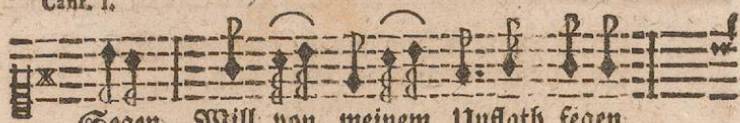 Cant. 1.
Segen Will von meinem Unflath fegen